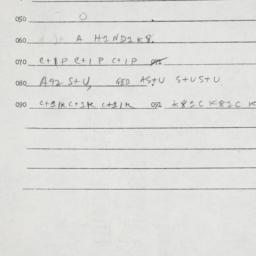 050 O
060 A H2ND2K8.
070 C+1P C+1P C+1P
080 A92 S+U, 680 AS+U S+US+U
090 C+1K C+1K C+1K 091 K82C K82C K